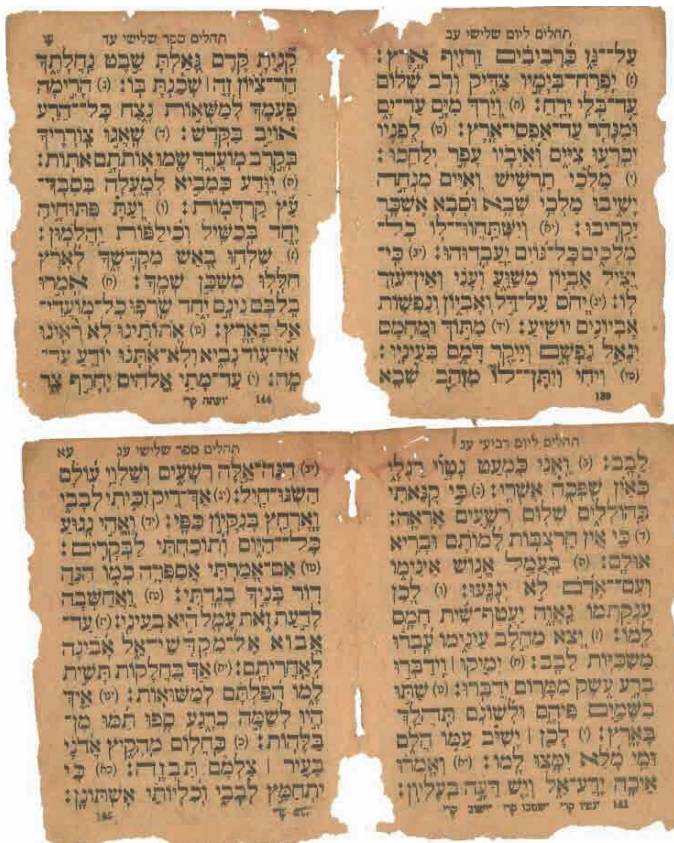 תהלים ליום שלישי עב
עַל־גֵּז כִּרְבִיבִים זַרְזִיף אָרֶץ׃
(ז) יִפְרַח־בְּיָמָיו צַדִּיק וְרֹב שָׁלוֹם
עַד־בְּלִי יָרֵחַ׃ (ח) וְיֵרְדְּ מִיָּם עַד־יָם
וּמִנָּהָר עַד־אַפְסֵי־אָרֶץ׃ (ט) לְפָנָיו
יִכְרְעוּ צִיִּים וְאֹיְבָיו עָפָר יְלַחֵכוּ׃
(י) מַלְכֵי תַרְשִׁישׁ וְאִיִּים מִנְחָה
יָשִׁיבוּ מַלְכֵי שְׁבָא וּסְבָא אֶשְׁכָּר
יַקְרִיבוּ׃ (יא) וְיִשְׁתַּחֲווּ־לוֹ כָל־
מְלָכִים כָּל־גּוֹיִם יַעַבְדוּהוּ׃ (יב) כִּי־
יַצִּיל אֶבְיוֹן מְשַׁוֵּעַ וְעָנִי וְאֵין־עֹזֵר
לוֹ׃ (יג) יָחֹס עַל־דַּל וְאֶבְיוֹן וְנַפְשׁוֹת
אֶבְיוֹנִים יוֹשִׁיעַ׃ (יד) מִתּוֹךְ וּמֵחָמָס
יִגְאַל נַפְשָׁם וְיֵיקַר דָּמָם בְּעֵינָיו׃
(טו) וִיחִי וְיִתֶּן־לוֹ מִזְּהַב שְׁבָא
139
תהלים ספר שלישי עד
קָנִיתָ קֶּדֶם גָּאַלְתָּ שֵׁבֶט נַחֲלָתֶךָ
הַר־צִיּוֹן זֶה׀ שָׁכַנְתָּ בּוֹ׃ (ג) הָרִימָה
פְעָמֶיךָ לְמַשֻּׁאוֹת נֶצַח כָּל־הֵרַע
אוֹיֵב בַּקֹּדֶשׁ׃ (ד) שָׁאֲגוּ צֹרְרֶיךָ
בְּקֶרֶב מוֹעֲדֶךָ שָׂמוּ אוֹתֹתָם אֹתוֹת׃
(ה) יִוָּדַע כְּמֵבִיא לְמָעְלָה בִּסְבָךְ־
עֵץ קַרְדֻּמּוֹת׃ (ו) וְעַתָּ פִּתּוּחֶיהָ
יָּחַד בְּכַשִּׁיל וְכֵילַפּוֹת יַהֲלֹמוּן׃
(ז) שִׁלְחוּ בָאֵשׁ מִקְדָּשֶׁךָ לָאָרֶץ
חִלְּלוּ מִשְׁכַּן שְׁמֶךָ׃ (ח) אָמְרוּ
בְלִבָּם נִינָם יָחַד שָׂרְפוּ כָל־מוֹעֲדֵי־
אֵל בָּאָרֶץ׃ (ט) אוֹתֹתֵינוּ לֹא רָאִינוּ
אֵין־עוֹד נָבִיא וְלֹא־אִתָּנוּ יוֹדֵעַ עַד־
מָה׃ (י) עַד־מָתַי אֱלֹהִים יְחָרֶף צָר
144 ועתה קרי
תהלים ליום רביעי עג
לֵבָב׃ (ב) וַאֲנִי כִּמְעַט נָטָיוּ רַגְלָי
כְּאַיִן שֻׁפְּכָה אֲשֻׁרָי׃ (ג) כִּי־קִנֵּאתִי
בַּהוֹלְלִים שְׁלוֹם רְשָׁעִים אֶרְאֶה׃
(ד) כִּי אֵין חַרְצֻבּוֹת לְמוֹתָם וּבָרִיא
אוּלָם׃ (ה) בַּעֲמַל אֱנוֹשׁ אֵינֵימוֹ
וְעִם־אָדָם לֹא יְנֻגָּעוּ׃ (ו) לָכֵן
עֲנָקַתְמוֹ גַאֲוָה יַעֲטָף־שִׁית חָמָס
לָמוֹ׃ (ז) יָצָא מֵחֵלֶב עֵינֵימוֹ עָבְרוּ
מַשְׂכִּיּוֹת לֵבָב׃ (ח) יָמִיקוּ׀ וִידַבְּרוּ
בְרָע עֹשֶׁק מִמָּרוֹם יְדַבֵּרוּ׃ (ט) שַׁתּוּ
בַשָּׁמַיִם פִּיהֶם וּלְשׁוֹנָם תִּהֲלַךְ
בָּאָרֶץ׃ (י) לָכֵן׀ יָשִׁיב עַמּוֹ הֲלֹם
וּמֵי מָלֵא יִמָּצוּ לָמוֹ׃ (יא) וְאָמְרוּ
אֵיכָה יָדַע־אֵל וְיֵשׁ דֵּעָה בְעֶלְיוֹן׃
141 נטיו קרי קרי ישוב קרי
תהלים ספר שלישי עג עא
(יב) הִנֵּה־אֵלֶּה רְשָׁעִים וְשַׁלְוֵי עוֹלָם
הִשְׂגּוּ־חָיִל׃ (יג) אַךְ־רִיק זִכִּיתִי לְבָבִי
וָאֶרְחַץ בְּנִקָּיוֹן כַּפָּי׃ (יד) וָאֱהִי נָגוּעַ
כָּל־הַיּוֹם וְתוֹכַחְתִּי לַבְּקָרִים׃
(טו) אִם־אָמַרְתִּי אֲסַפְּרָה כְמוֹ הִנֵּה
דוֹר בָּנֶיךָ בָגָדְתִּי׃ (טז) וָאֲחַשְּׁבָה
לָדַעַת זֹאת עָמָל הִיא בְעֵינָי׃ (יז) עַד־
אָבוֹא אֶל־מִקְדְּשֵׁי־אֵל אָבִינָה
לְאַחֲרִיתָם׃ (יח) אַךְ בַּחֲלָקוֹת תָּשִׁית
לָמוֹ הִפַּלְתָּם לְמַשּׁוּאוֹת׃ (יט) אֵיךְ
הָיוּ לְשַׁמָּה כְרָגַע סָפוּ תַמּוּ מִן־
בַּלָּהוֹת׃ (כ) כַּחֲלוֹם מֵהָקִיץ אֲדֹנָי
בָּעִיר׀ צַלְמָם תִּבְזֶה׃ (כא) כִּי
יִתְחַמֵּץ לְבָבִי וְכִלְיוֹתַי אֶשְׁתּוֹנָן׃